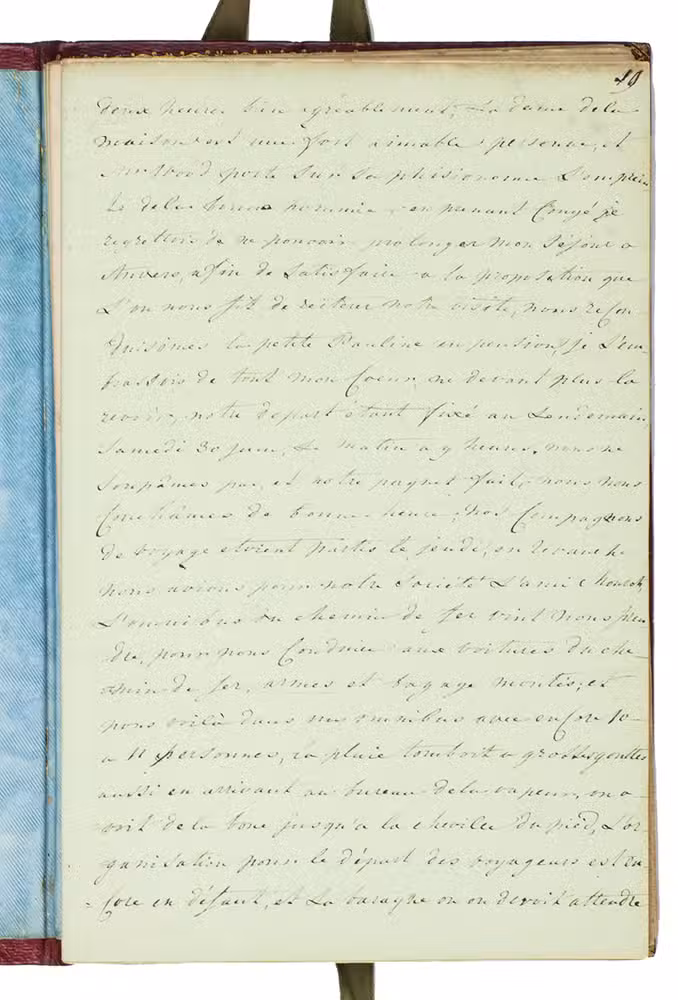 19
deux heures bien agréablement, La dame dela
maison est une fort aimable personne, et
Mr Wood porte sur sa phisionomie L'emprein
te dela bonne hommie, en prenant Congé je
regrettois de ne pouvoir prolonger mon Séjour a
Anvers, afin de Satisfaire a la proposition que
L'on nous fit de reiterer notre visite, nous recon
duisimes la petite Pauline en pension, je L'em
brassois de tout mon Coeur, ne devant plus la
revoir, notre depart étant fixé au Lendemain,
Samedi 30 juin, Le matin a 9 heures, nous ne
Soupâmes pas, et notre paquet fait, nous nous
Couchâmes de bonne heure, nos Compagnons
de voyage etoient partis le jeudi, en revanche
nous avions pour notre Société L'ami
L'omnibus du chemin de fer vint nous pren
dre, pour nous Conduire aux voitures du che
min de fer, armes et bagage montés, et
nous voilà dans un omnibus avec encore 10
a 11 personnes, la pluie tomboit a grosses gouttes
aussi en arrivant au bureau dela vapeur, on a
voit de la boue jusqu'a la cheville du pied, L'or
ganisation pour le départ des voyageurs est en
Core en défaut, et La baraque ou on devoit attendre